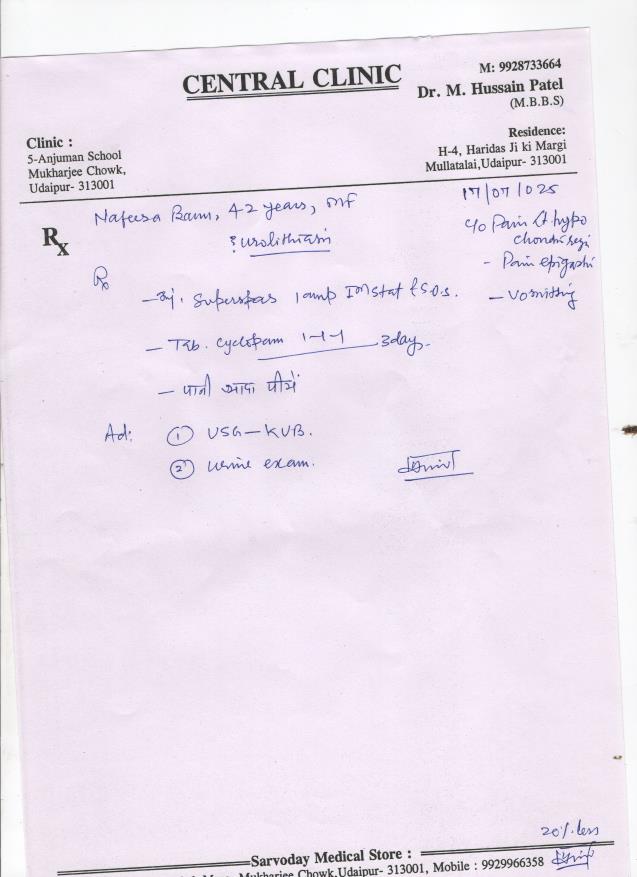 CENTRAL CLINIC
M: 9928733664
Dr. M. Hussain Patel
(M.B.B.S)
Clinic :
5-Anjuman School
Mukharjee Chowk,
Udaipur- 313001
Residence:
H-4, Haridas Ji ki Margi
Mullatalai,Udaipur- 313001
17/07/025
Rx
Nafeesa Banu, 42 years, mF
? urolithiasis
c/o Pain Lt hypo
chondri
- Pain epigastri
- Vomitting
Rx
- Inj. Superspas 1 amp IM Stat & S.O.S.
- Tab. Cyclopam 1-1-1 3 days.
- पानी पीयें
Ad: ① USG - KUB.
② Urine exam.
20% less
Sarvoday Medical Store :
Mukharjee Chowk,Udaipur- 313001, Mobile : 9929966358